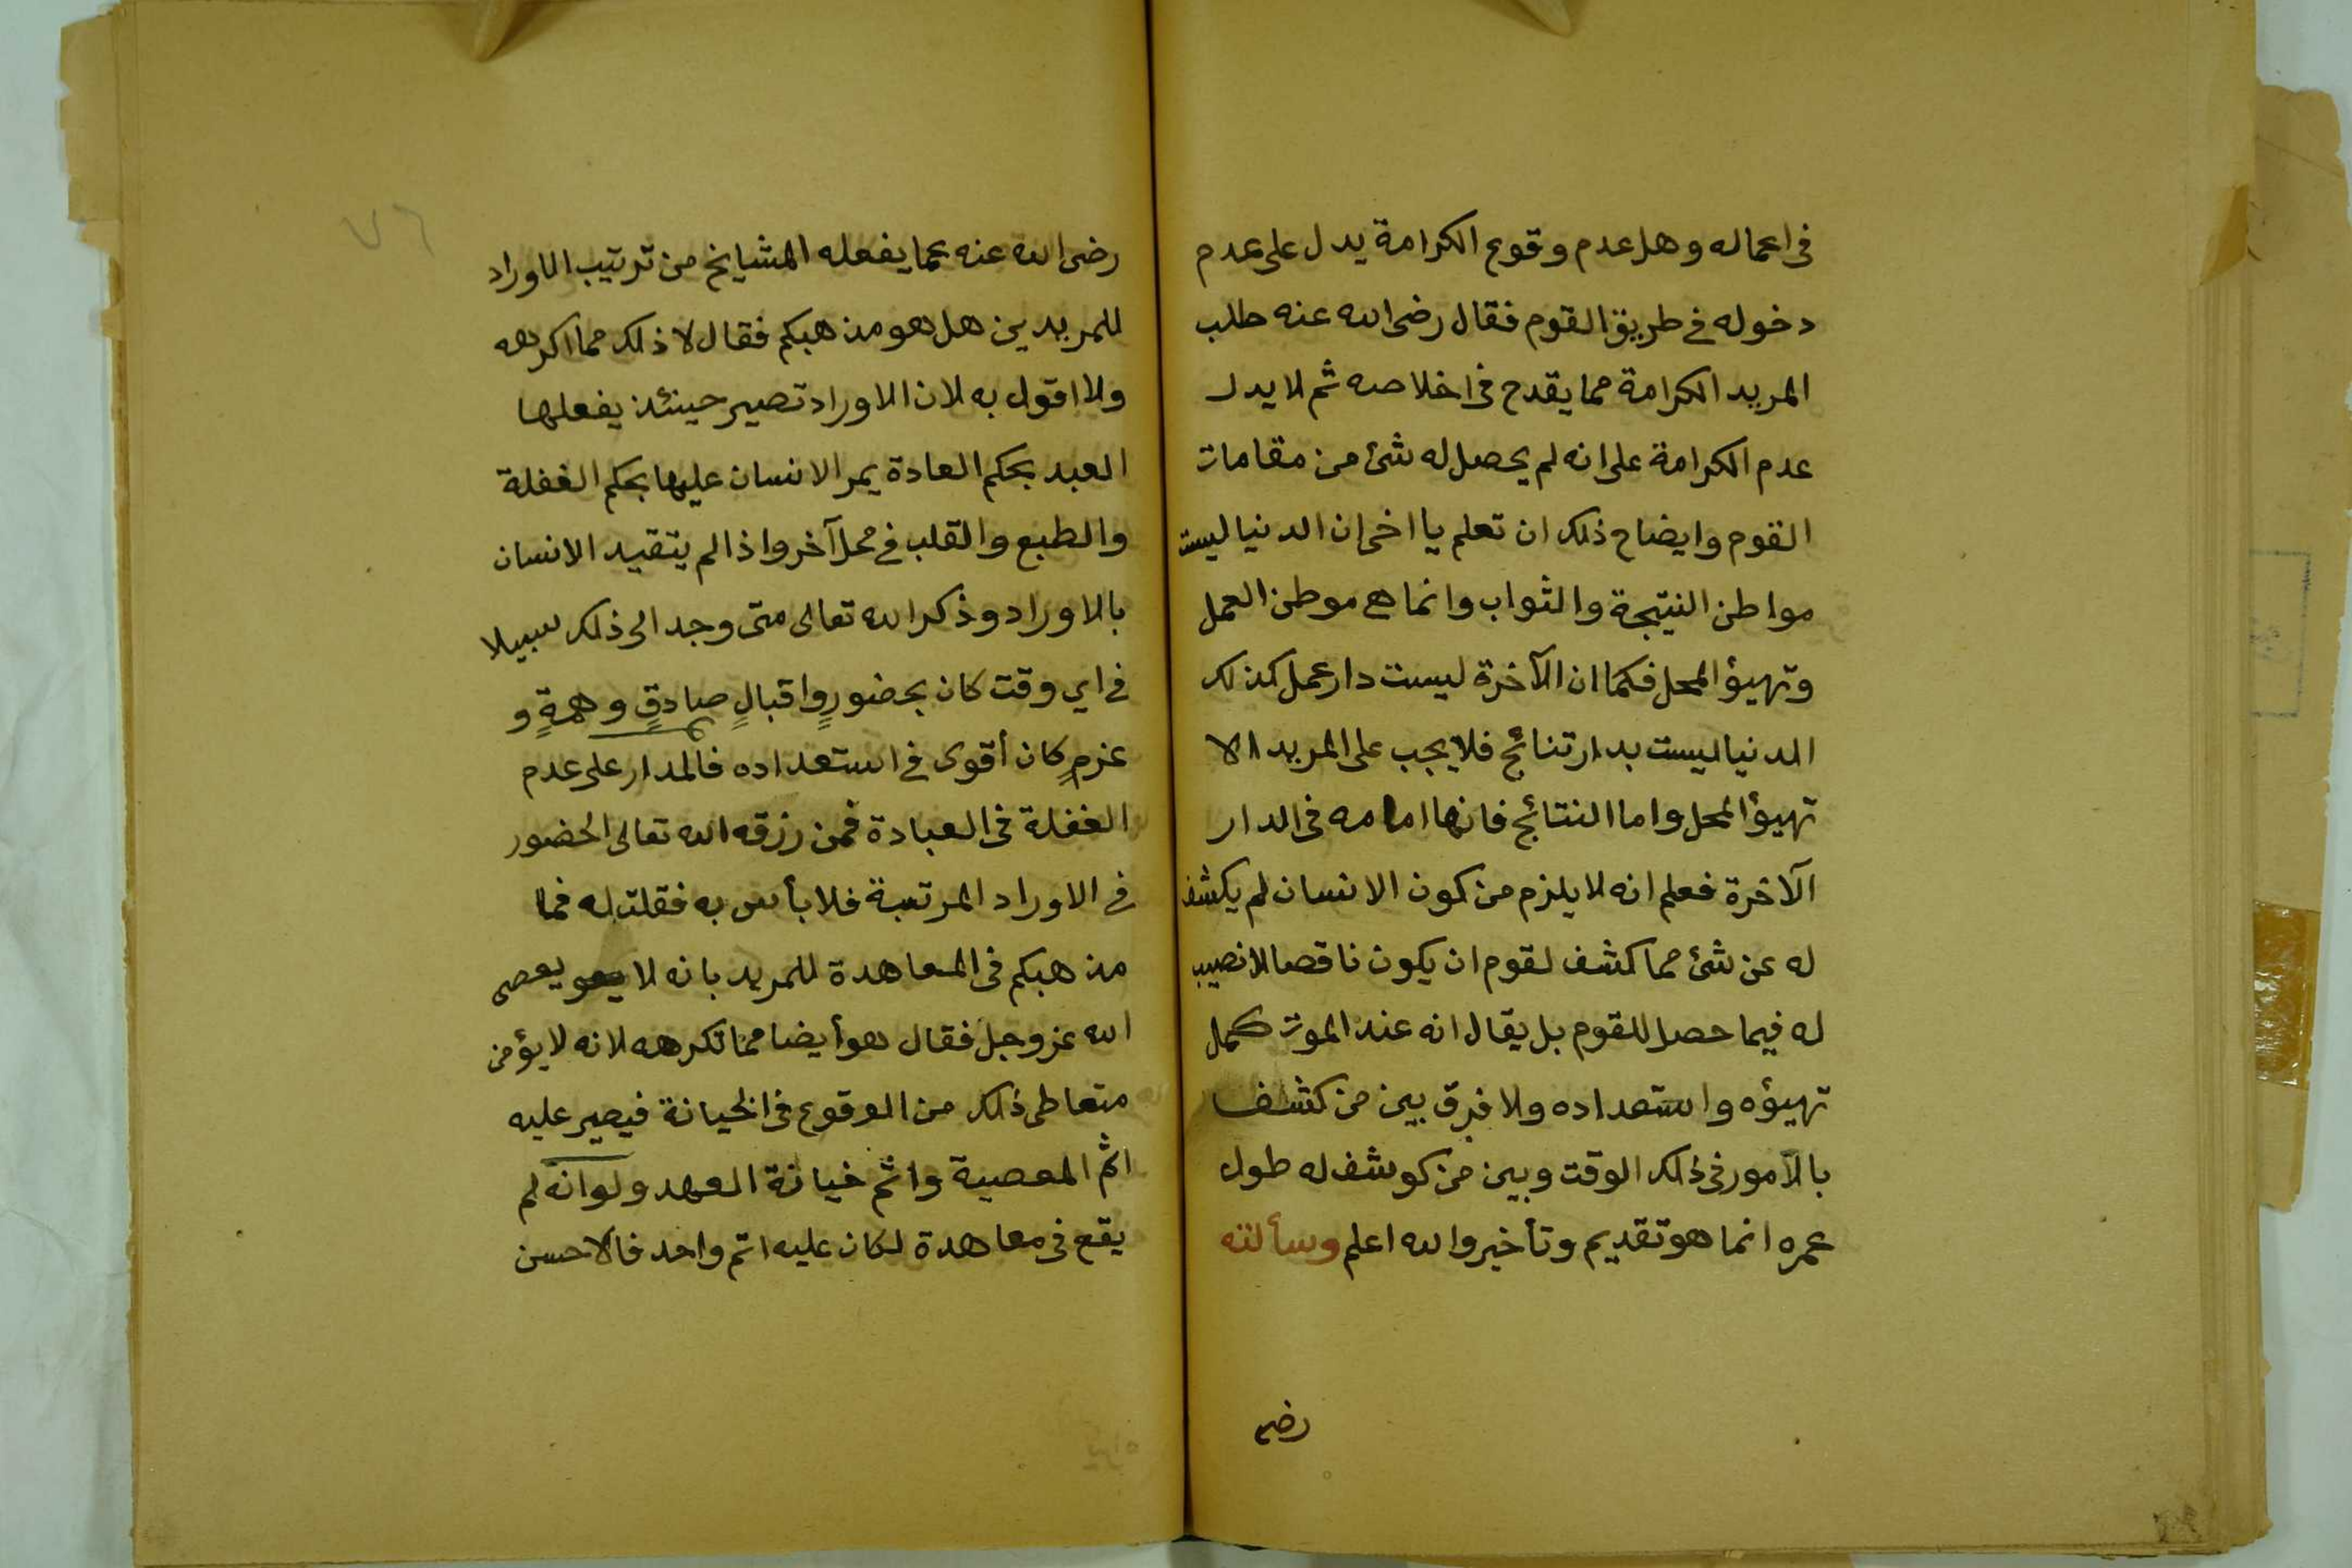 في اعماله وهل عدم وقوع الكرامة يدل على عدم
دخوله في طريق القوم فقال رضى الله عنه طلب
المريد الكرامة مما يقدح في اخلاصه ثم لا يدل
عدم الكرامة على انه لم يحصل له شئ من مقامات
القوم وايضاح ذلك ان تعلم يا اخى ان الدنيا ليست
مواطن النتيجة والثواب وانما هى موطن العمل
وتهيؤ المحل فكما ان الآخرة ليست دار عمل كذلك
الدنيا ليست بدار تنائج فلا يجب على المريد الا
تهيؤ المحل واما النتائج فانها امامه في الدار
الآخرة فعلم انه لا يلزم من كون الانسان لم يكشف
له عن شئ مما كشف لقوم ان يكون ناقصا لا نصيب
له فيما حصل للقوم بل يقال انه عند الموت كمل
تهيؤه واستعداده ولا فرق بين من كشف
بالآمور في ذلك الوقت وبين من كوشف له طول
عمره انما هو تقديم وتأخير والله اعلم وسألته
رضى
٧٦
رضى الله عنه عما يفعله المشايخ من ترتيب الاوراد
للمريدين هل هو مذهبكم فقال لا ذلك مما اكرهه
ولا اقول به لان الاوراد تصير حينئذ يفعلها
العبد بحكم العادة يمر الانسان عليها بحكم الغفلة
والطبع والقلب في محل آخر واذا لم يتقيد الانسان
بالاوراد وذكر الله تعالى متى وجد الى ذلك سبيلا
في اي وقت كان بحضورٍ واقبالٍ صادقٍ وهمةٍ و
عزمٍ كان أقوى في استعداده فالمدار على عدم
الغفلة في العبادة فمن رزقه الله تعالى الحضور
في الاوراد المرتبة فلا بأس به فقلت له فما
مذهبكم في المعاهدة للمريد بانه لا يعصى
الله عز وجل فقال هو أيضا مما نكرهه لانه لا يؤمن
متعاطى ذلك من الوقوع في الخيانة فيصير عليه
اثم المعصية واثم خيانة العهد ولو انه لم
يقع في معاهدة لكان عليه اثم واحد فالاحسن